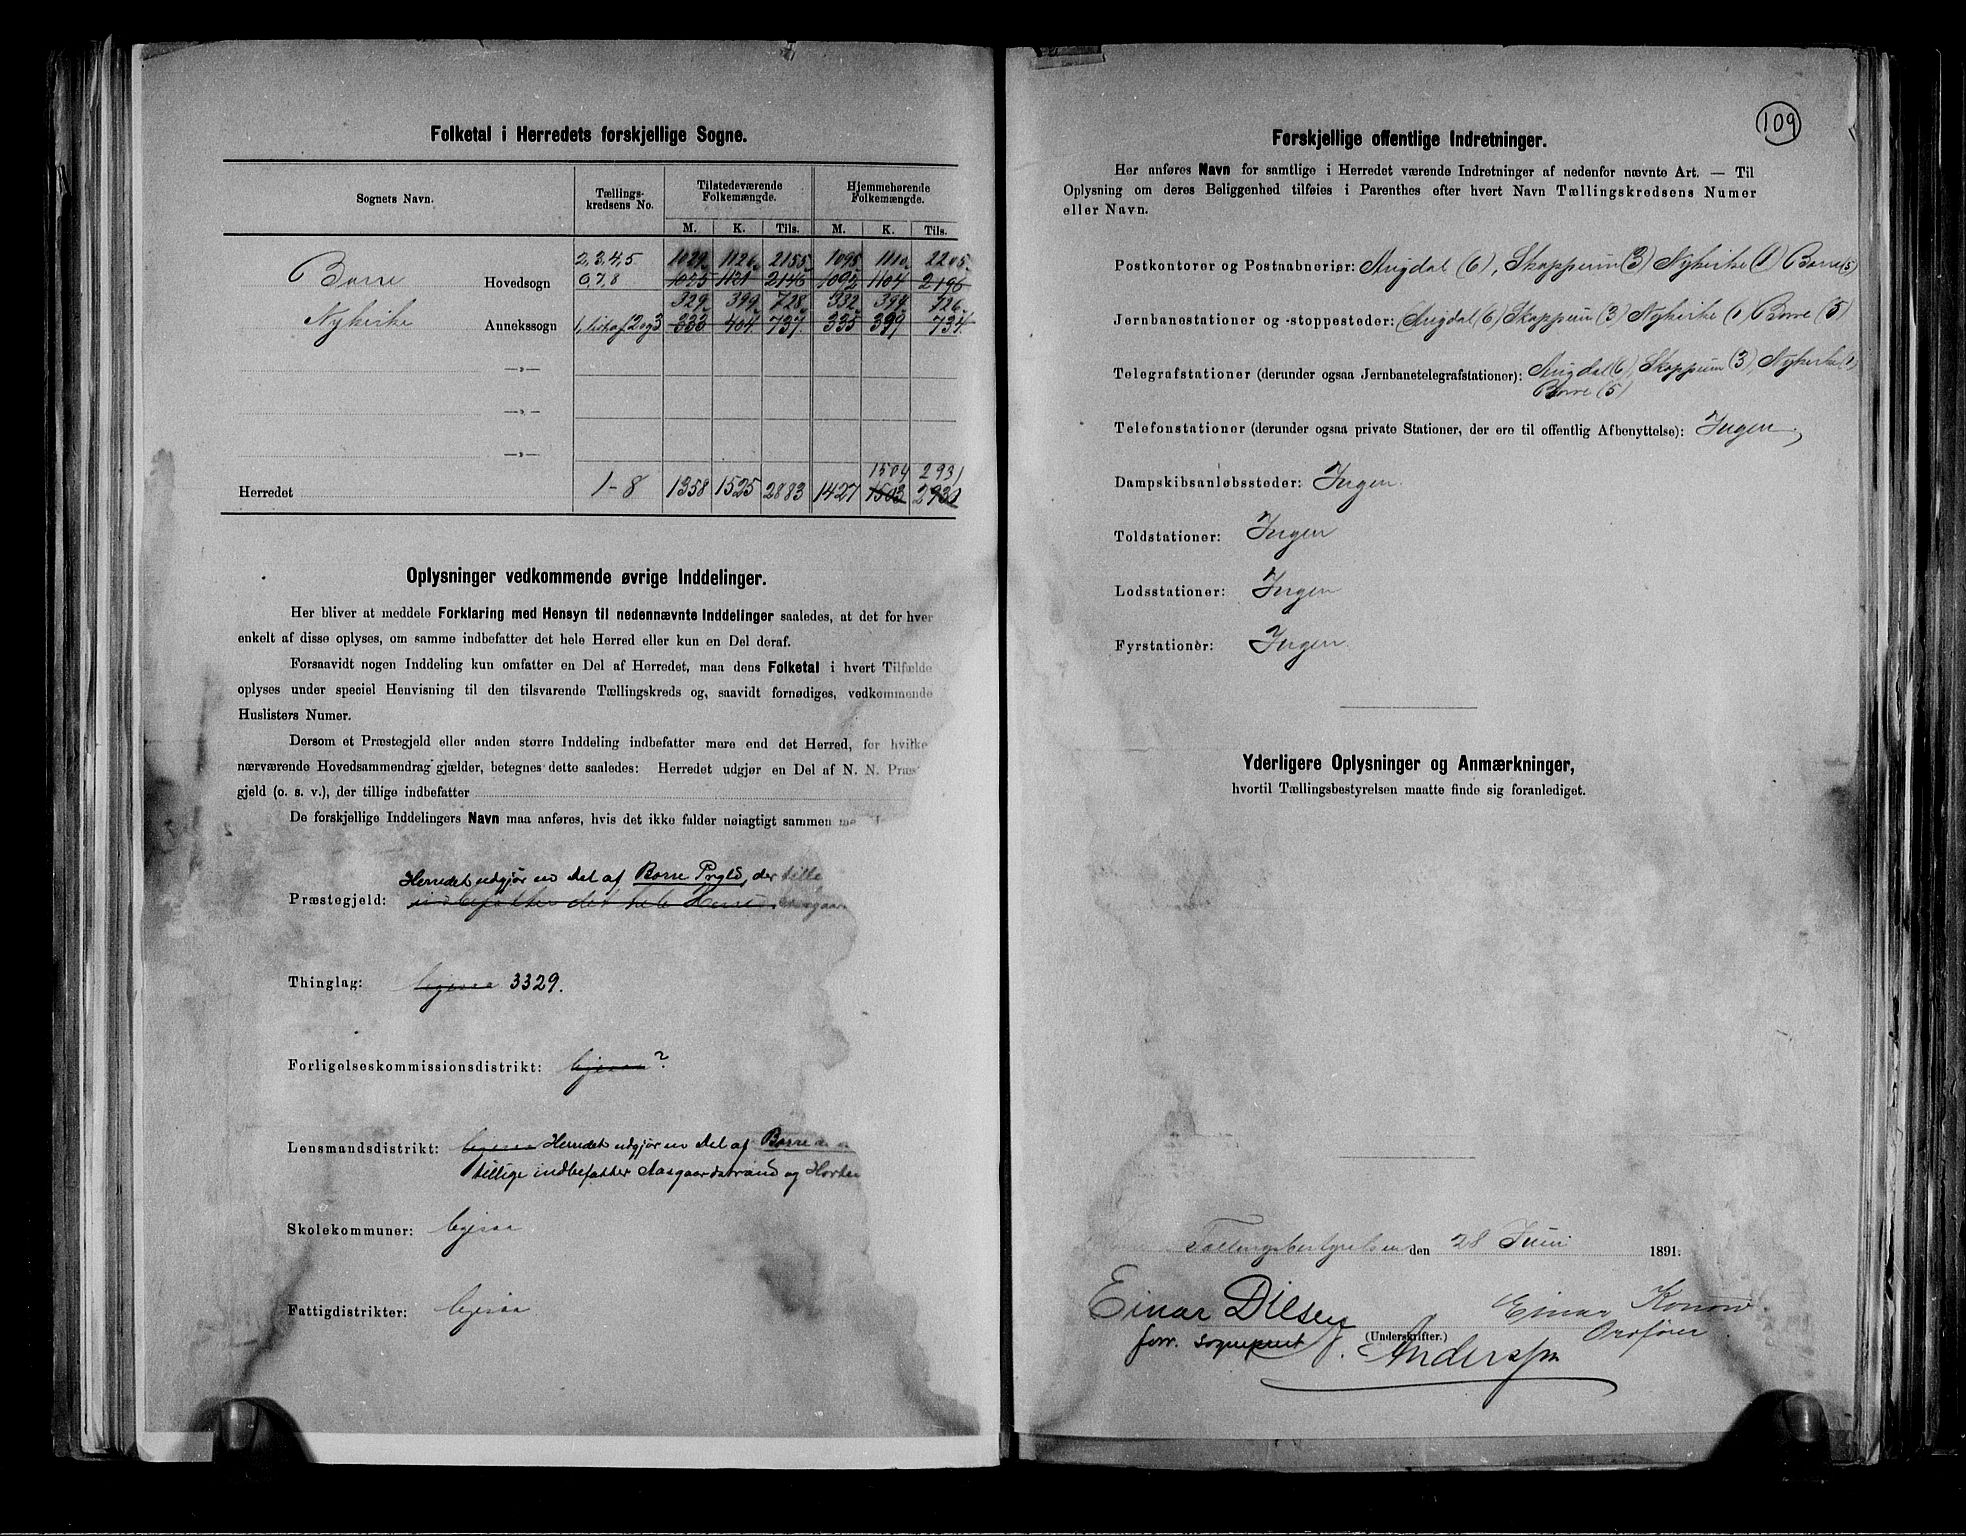 Folketal i Herredets forskjellige Sogne.
Sognets Navn. Tællings-kredsens No. Tilstedeværende Folkemængde. Hjemmehørende Folkemængde.
M. K. Tils. M. K. Tils.
2,3,4,5 1029 1126 2155 1095 1110 2205
Borre Hovedsogn 6,7,8 1025 1121 2146 1092 1104 2196
329 399 728 332 394 726
Nykirke Annekssogn 1, 333 404 737 335 399 734
—»—
—»—
—»—
1504 2931
Herredet 1-8 1358 1525 2883 1427 1503 2930
Oplysninger vedkommende øvrige Inddelinger.
Her bliver at meddele Forklaring med Hensyn til nedennævnte Inddelinger saaledes, at det for hver
enkelt af disse oplyses, om samme indbefatter det hele Herred eller kun en Del deraf.
Forsaavidt nogen Inddeling kun omfatter en Del af Herredet, maa dens Folketal i hvert Tilfælde
oplyses under speciel Henvisning til den tilsvarende Tællingskreds og, saavidt fornødiges, vedkommende
Huslisters Numer.
Dersom et Præstegjeld eller anden større Inddeling indbefatter mere end det Herred, for hvilke
nærværende Hovedsammendrag gjælder, betegnes dette saaledes: Herredet udgjør en Del af N. N. Præst
gjeld (o. s. v.), der tillige indbefatter
De forskjellige Inddelingers Navn maa anføres, hvis det ikke falder nøiagtigt sammen me
Herredet udgjør en Del af Borre Prgld, der tille
Præstegjeld: indbefatter det hele Herred
Thinglag: ligesaa 3329.
Forligelseskommissionsdistrikt: ligesaa ?
Lensmandsdistrikt: ligesaa Herredet udgjør en Del af Borre
tillige indbefatter Aasgaardstrand og Horten
Skolekommuner: ligesaa
Fattigdistrikter: ligesaa
109
Forskjellige offentlige Indretninger.
Her anføres Navn for samtlige i Herredet værende Indretninger af nedenfor nævnte Art. — Til
Oplysning om deres Beliggenhed tilføies i Parenthes efter hvert Navn Tællingskredsens Numer
eller Navn.
Postkontorer og Postaabnerier: Augdal (6), Skoppum (3) Nykirke (1) Borre (5)
Jernbanestationer og -stoppesteder: Augdal (6) Skoppum (3) Nykirke (1) Borre (5)
Telegrafstationer (derunder ogsaa Jernbanetelegrafstationer): Augdal (6), Skoppum (3), Nykirke (1)
Borre (5)
Telefonstationer (derunder ogsaa private Stationer, der ere til offentlig Afbenyttelse): Ingen
Dampskibsanløbssteder: Ingen.
Toldstationer: Ingen
Lodsstationer: Ingen
Fyrstationer: Ingen.
Yderligere Oplysninger og Anmærkninger,
hvortil Tællingsbestyrelsen maatte finde sig foranlediget.
Tællingsbestyrelsen den 28 Juni 1891.
Einar Dilsen Einar Konow.
(Underskrifter.) Ordfører
forr. Sogneprest J. Anderssen